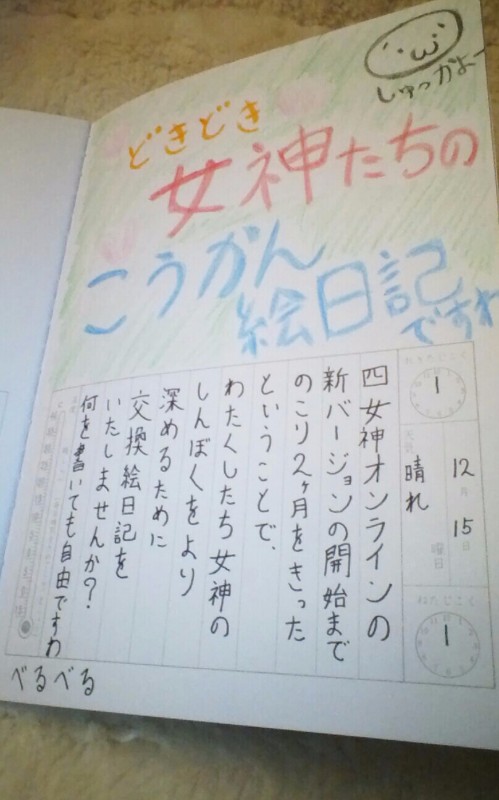 しゅっかよー
どきどき
女神たちの
こうかん
絵日記
ですわ
おきたじこく
1
12月15日
曜日
天気
晴れ
ねたじこく
1
四女神オンラインの
新バージョンの開始まで
のこり2ヶ月をきった
ということで、
わたくしたち女神の
しんぼくをより
深めるために
交換絵日記を
いたしませんか？
何を書いても自由ですわ
べるべる